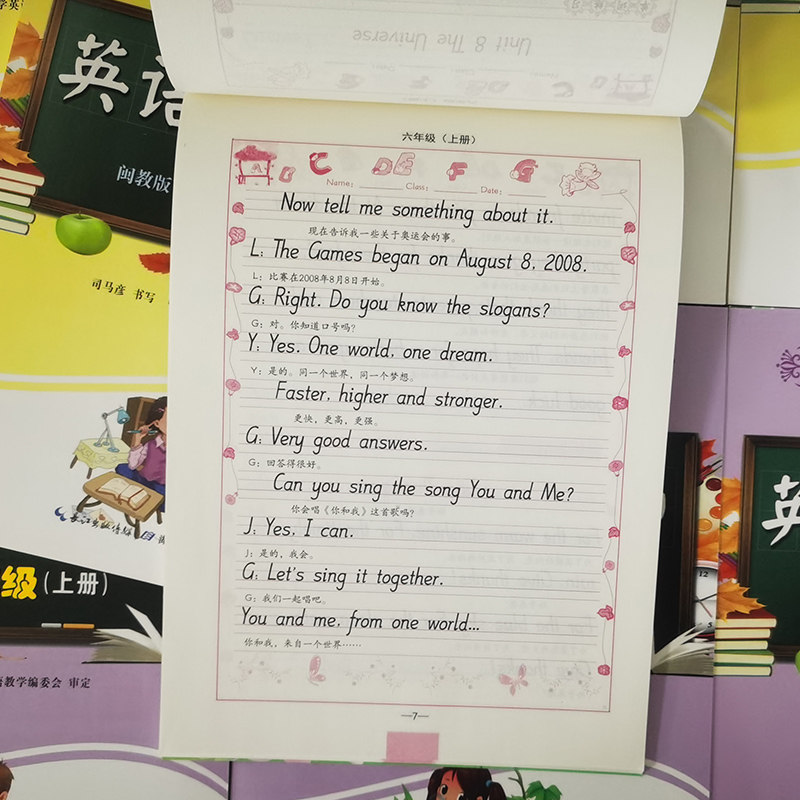 Unit 8 The Universe
六年级（上册）
Name: Class: Date:
Now tell me something about it.
现在告诉我一些关于奥运会的事。
L: The Games began on August 8, 2008.
L: 比赛在2008年8月8日开始。
G: Right. Do you know the slogans?
G: 对。你知道口号吗？
Y: Yes. One world, one dream.
Y: 是的。同一个世界，同一个梦想。
Faster, higher and stronger.
更快，更高，更强。
G: Very good answers.
G: 回答得很好。
Can you sing the song You and Me?
你会唱《你和我》这首歌吗？
J: Yes, I can.
J: 是的，我会。
G: Let's sing it together.
G: 我们一起唱吧。
You and me, from one world...
你和我，来自一个世界……
—7—
英语
闽教版
司马彦 书写
级（上册）
语教学编委会 审定
英